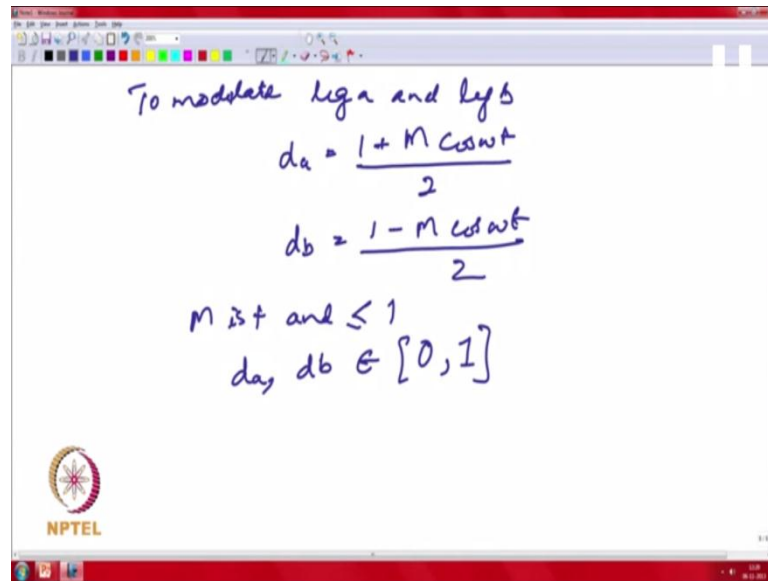 To modulate leg a and leg b
da = 1 + M cos ωt
2
db = 1 - M cos ωt
2
M is + and ≤ 1
da, db ∈ [0, 1]
NPTEL